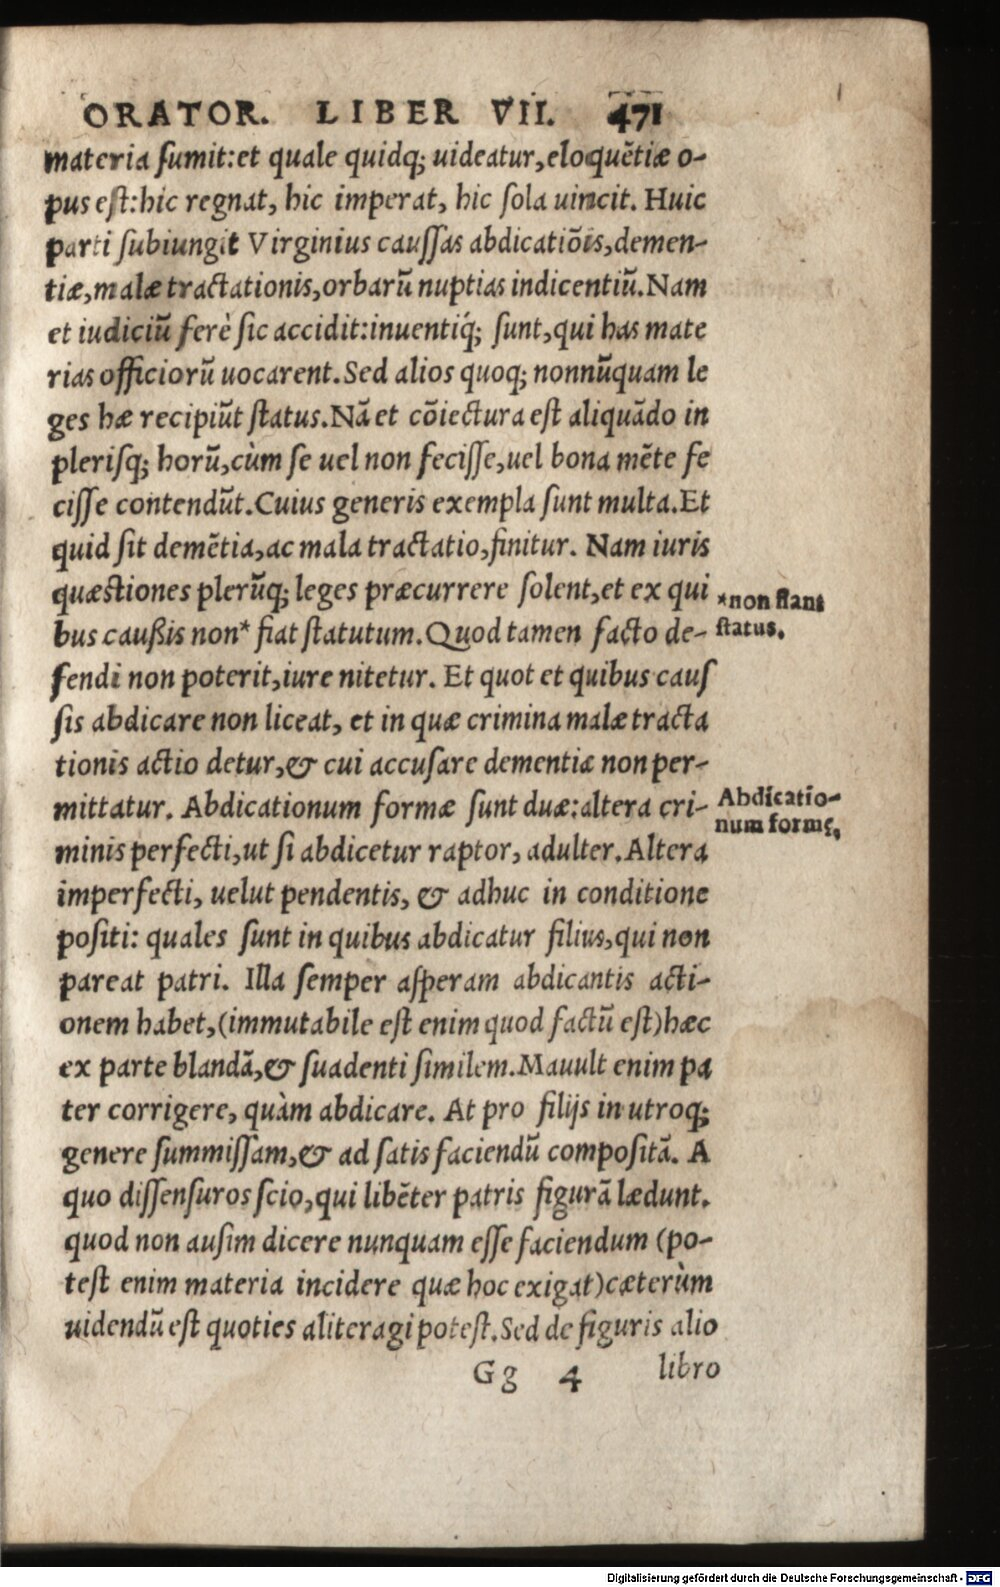 ORATOR. LIBER VII. 471
materia ſumit:et quale quidq; uideatur,eloquẽtiæ o-
pus eſt:hic regnat, hic imperat, hic ſola uincit. Huic
parti ſubiungit Virginius cauſſas abdicatiõis,demen-
tiæ,malæ tractationis,orbarũ nuptias indicentiũ.Nam
et iudiciũ ferè ſic accidit:inuentiq́; ſunt,qui has mate
rias officiorũ uocarent.Sed alios quoq; nonnũquam le
ges hæ recipiũt ſtatus.Nã et cõiectura eſt aliquãdo in
pleriſq; horũ,cùm ſe uel non feciſſe,uel bona mẽte fe
ciſſe contendũt.Cuius generis exempla ſunt multa.Et
quid ſit demẽtia,ac mala tractatio,finitur. Nam iuris
quæstiones plerũq; leges præcurrere ſolent,et ex qui
*non ſtant
bus caußis non* fiat ſtatutum.Quod tamen facto de-
ſtatus.
fendi non poterit,iure nitetur. Et quot et quibus cauſ
ſis abdicare non liceat, et in quæ crimina malæ tracta
tionis actio detur,& cui accuſare dementiæ non per-
mittatur. Abdicationum formæ ſunt duæ:altera cri-
Abdicatio-
num formę.
minis perfecti,ut ſi abdicetur raptor, adulter.Altera
imperfecti, uelut pendentis, & adhuc in conditione
poſiti: quales ſunt in quibus abdicatur filius,qui non
pareat patri. Illa ſemper aſperam abdicantis acti-
onem habet,(immutabile eſt enim quod factũ eſt)hæc
ex parte blandã,& ſuadenti ſimilem.Mauult enim pa
ter corrigere, quàm abdicare. At pro filijs in utroq;
genere ſummiſſam,& ad ſatis faciendũ compoſitã. A
quo diſſenſuros ſcio,qui libẽter patris figurã lædunt.
quod non auſim dicere nunquam eſſe faciendum (po-
teſt enim materia incidere quæ hoc exigat)cæterùm
uidendũ eſt quoties aliter agi poteſt.Sed de figuris alio
Gg 4 libro
Digitalisierung gefördert durch die Deutsche Forschungsgemeinschaft - DFG